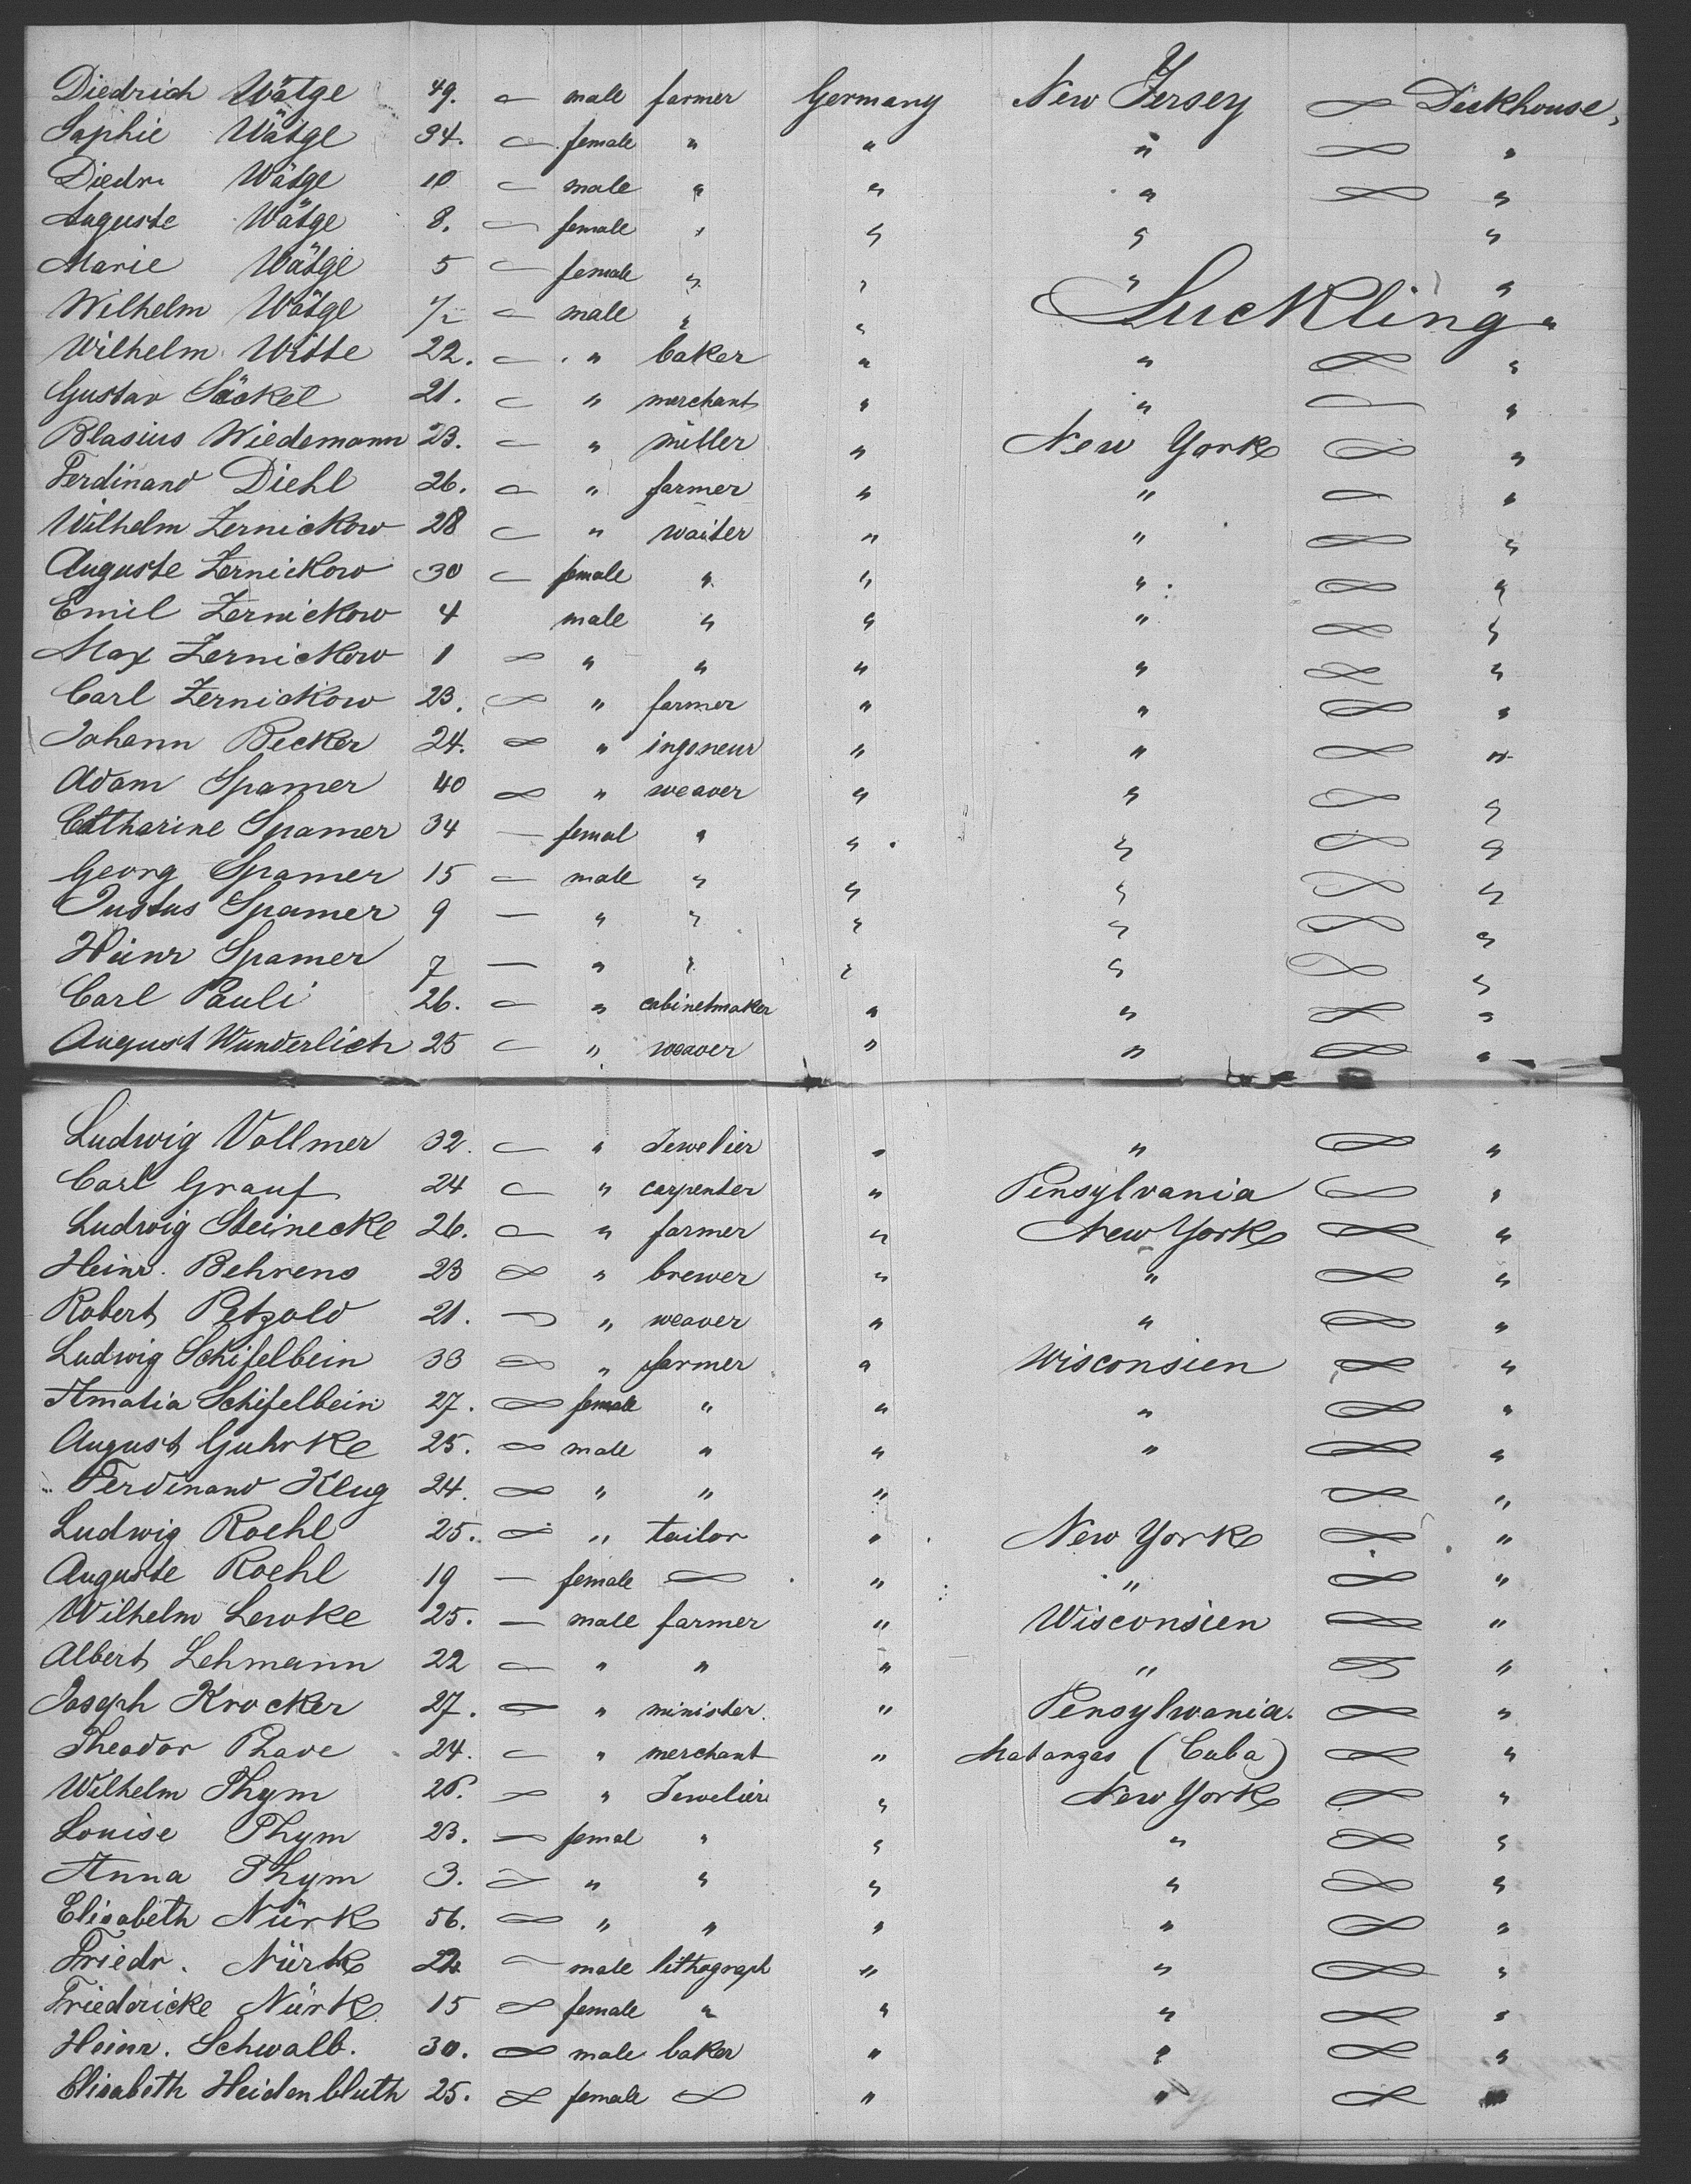 Diedrich Wätge 49. male farmer Germany New Jersey Deckhouse,
Sophie Wätge 34. female " " " "
Diedr. Wätge 10 male " " " "
Auguste Wätge 8. female " " " "
Marie Wätge 5 female " " " "
Wilhelm Wätge 1/2 male " " Suckling "
Wilhelm Witte 22. " baker " " "
Gustav Säckel 21. " merchant " " "
Blasius Wiedemann 23. " miller " New York "
Ferdinand Diehl 26. " farmer " " "
Wilhelm Zernickow 28 " waiter " " "
Auguste Zernickow 30 female " " " "
Emil Zernickow 4 male " " " "
Max Zernickow 1 " " " " "
Carl Zernickow 23. " farmer " " "
Johann Becker 24. " ingeneur " " "
Adam Spamer 40 " weaver " " "
Catharine Spamer 34 femal " " " "
Georg Spamer 15 male " " " "
Justus Spamer 9 " " " " "
Heinr Spamer 7 " " " " "
Carl Pauli 26. " cabinetmaker " " "
August Wunderlich 25 " weaver " " "
Ludwig Vollmer 32. " Jewelier " " "
Carl Grauf 24 " carpenter " Pensylvania "
Ludwig Steinecke 26. " farmer " New York "
Heinr. Behrens 23 " brewer " " "
Robert Petzold 21. " weaver " " "
Ludwig Schifelbein 33 " farmer " Wisconsien "
Amalia Schifelbein 27. female " " " "
August Guhrke 25. male " " " "
Ferdinand Klug 24. " " " "
Ludwig Roehl 25. " tailor " New York "
Auguste Roehl 19 female " " "
Wilhelm Lewke 25. male farmer " Wisconsien "
Albert Lehmann 22 " " " " "
Joseph Krocker 27. " minister " Pensylwania. "
Theodor 24. " merchant " Matanzas (Cuba) "
Wilhelm Thym 26. " Jewelier " New York "
Louise Thym 23. femal " " " "
Anna Thym 3. " " " " "
Elisabeth Nürk 56. " " " " "
Friedr. Nürk 22 male lithograph " " "
Friedericke Nürk 15 female " " " "
Heinr. Schwalb. 30. male baker " " "
Elisabeth Heidenbluth 25. female " " "